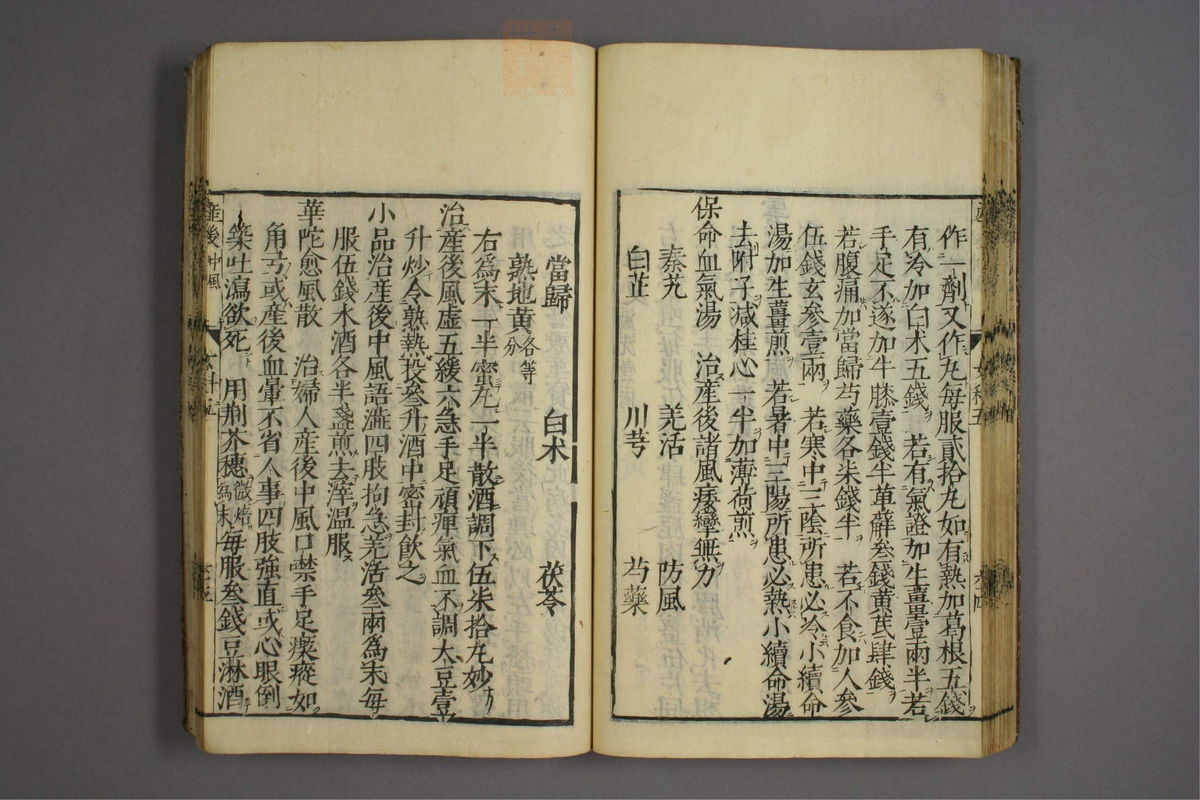 作一劑又作丸每服貳拾丸如有熱加葛根五錢
有冷加白术五錢 若有氣證加生薑壹兩半若
手足不遂加牛膝壹錢半萆薢叄錢黄芪肆錢
若腹痛加當歸芍藥各柒錢半 若不食加人參
伍錢玄參壹兩 若寒中三陰所患必冷小續命
湯加生薑煎 若暑中三陽所患必熱小續命湯
去附子減桂心一半加薄荷煎
保命血氣湯 治産後諸風痿攣無力
秦艽 羌活 防風
白芷 川芎 芍藥
當歸 白术 茯苓
熟地黄各等分
右爲末一半蜜丸一半散酒調下伍柒拾丸妙
治産後風虚五緩六急手足頑痺氣血不調大豆壹
升炒令熟熱投叄升酒中密封飲之
小品治産後中風語澁四肢拘急羌活叄兩爲末每
服伍錢水酒各半盞煎去滓温服
華陀愈風散 治婦人産後中風口禁手足瘈瘲如
角弓或産後血暈不省人事四肢強直或心眼倒
築吐瀉欲死 用荆芥穗微焙爲末每服叄錢豆淋酒
産後中風
女科五